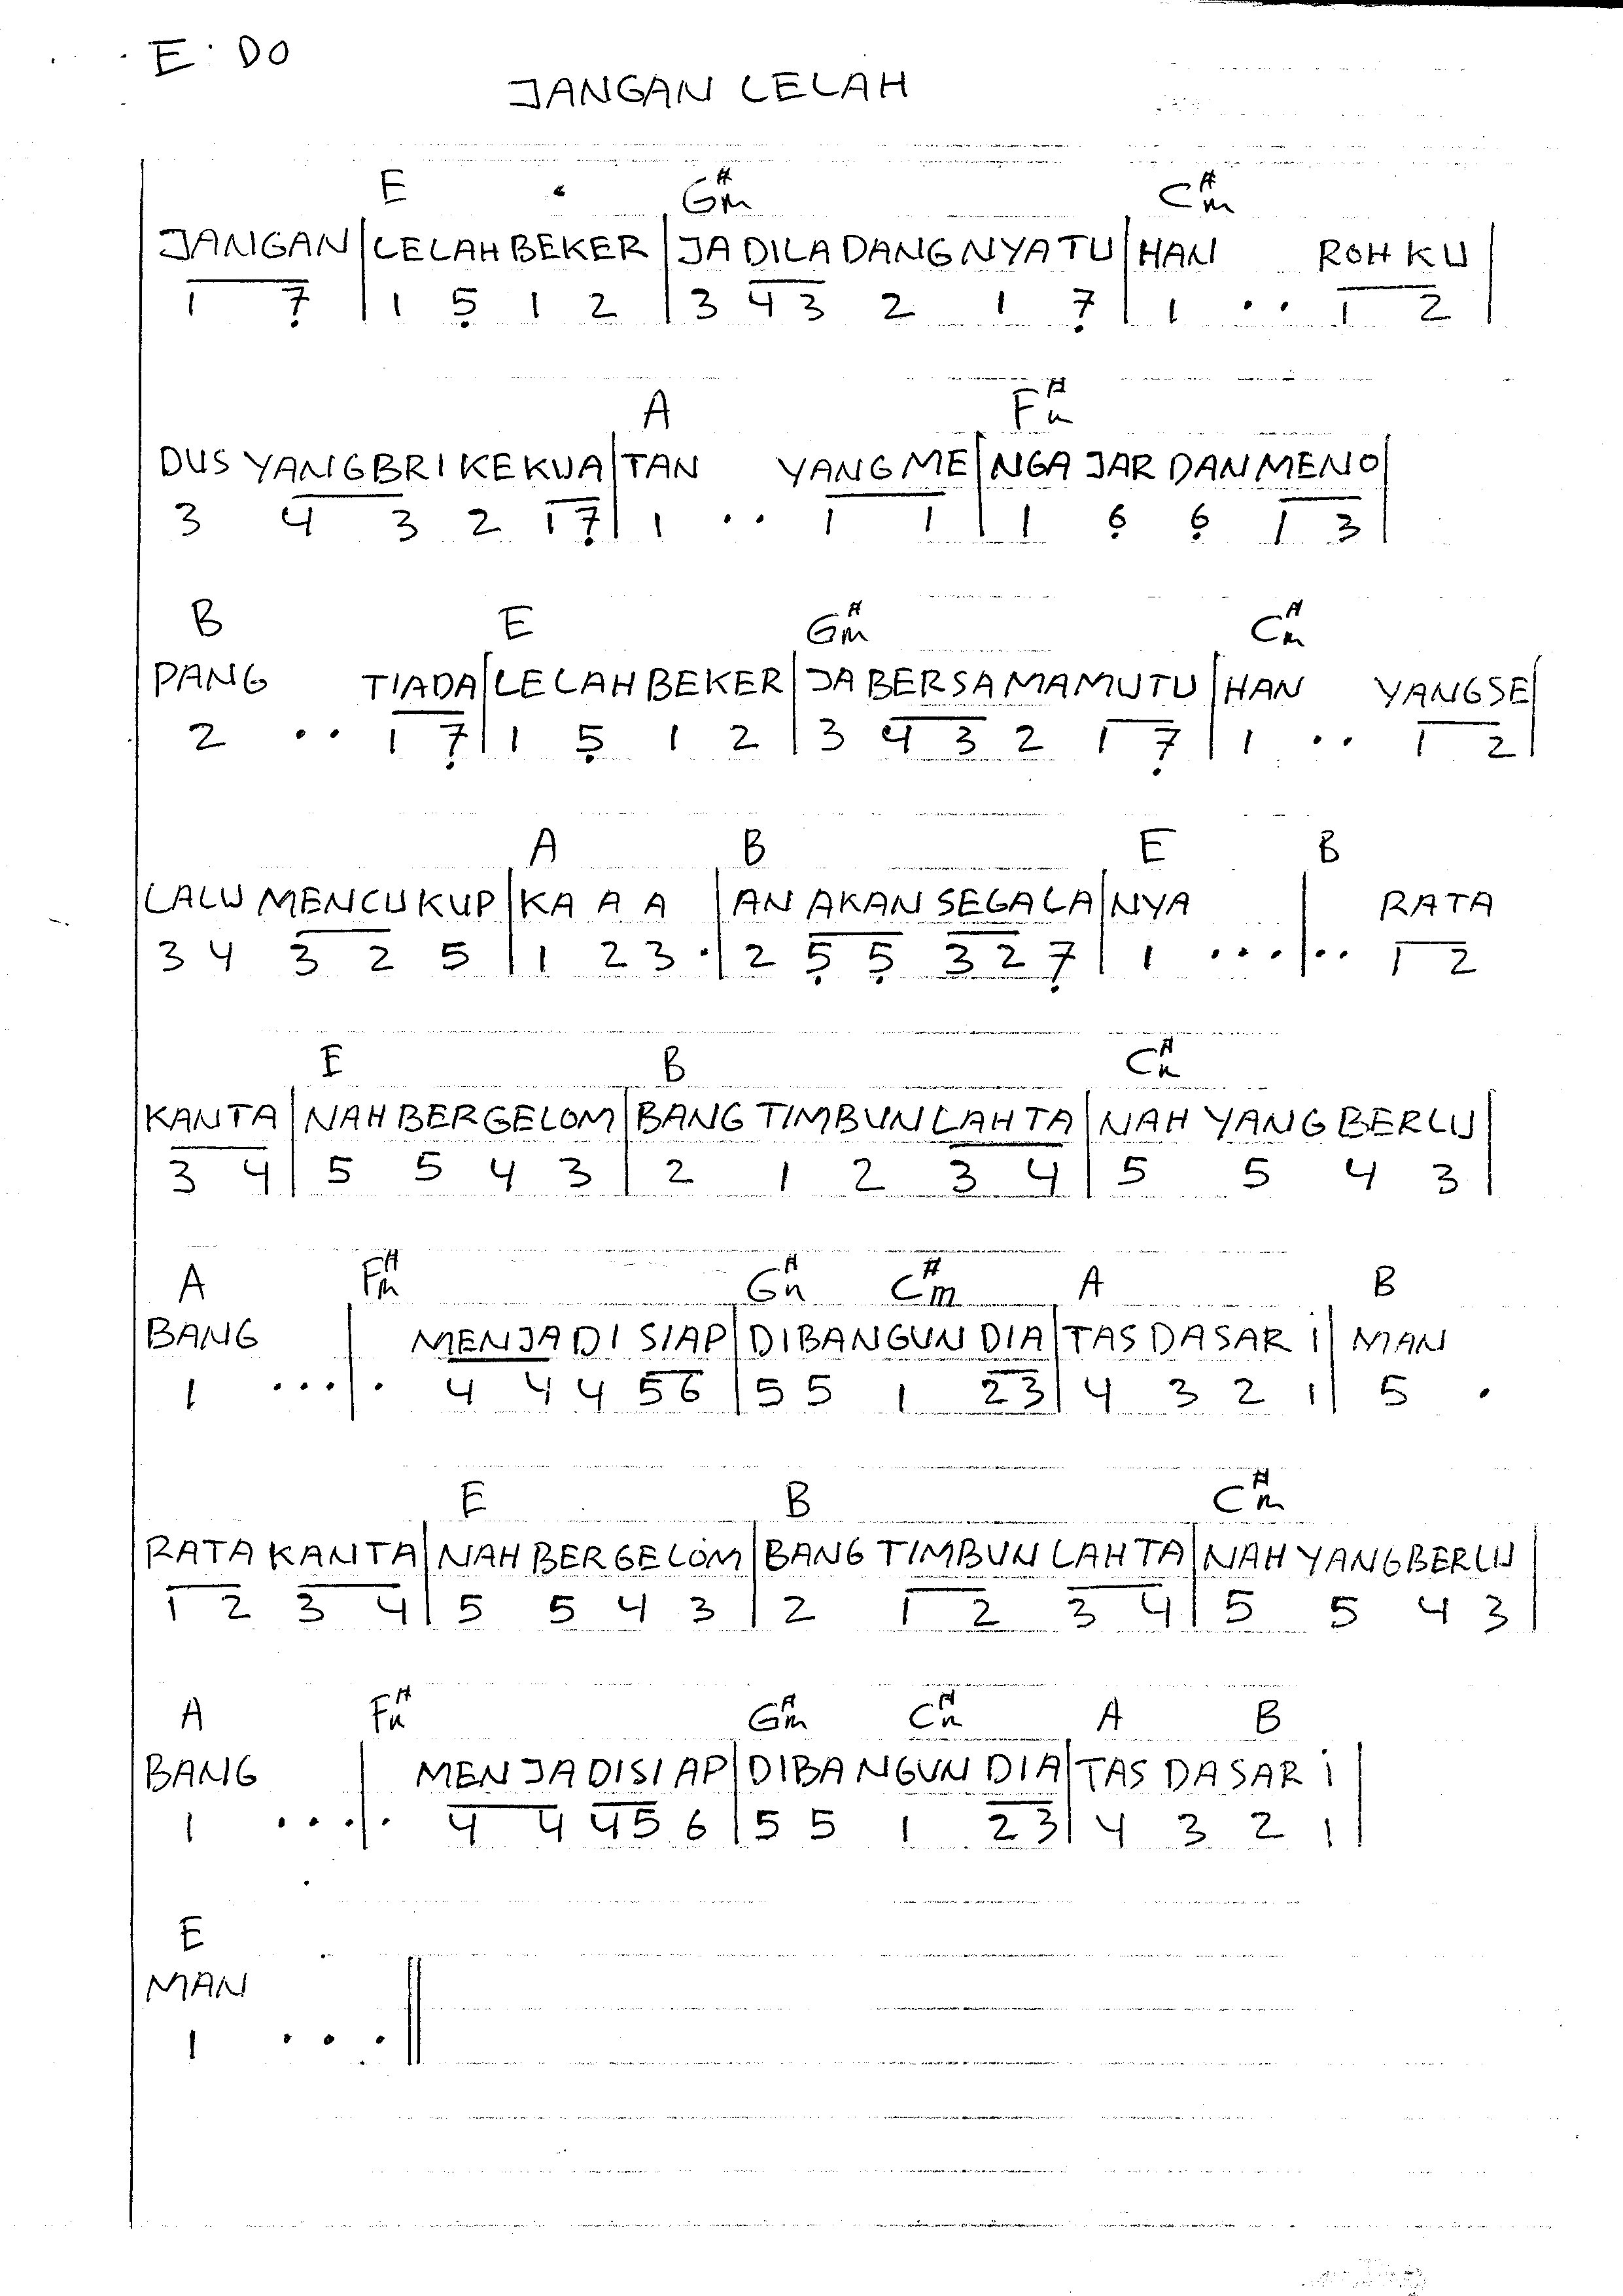 E : DO
JANGAN LELAH
E G#m C#m
JANGAN | LELAH BEKER | JA DILADANGNYA TU | HAN ROH KU |
1 7̣ | 1 5̣ 1 2 | 3 4 3 2 1 7̣ | 1 . . 1 2 |
A F#m
DUS YANG BRI KEKUA | TAN YANG ME | NGA JAR DAN MENO |
3 4 3 2 1 7̣ | 1 . . 1 1 | 1 6̣ 6̣ 1 3 |
B E G#m C#m
PANG TIADA | LELAH BEKER | JA BERSAMAMU TU | HAN YANG SE |
2 . . 1 7̣ | 1 5̣ 1 2 | 3 4 3 2 1 7̣ | 1 . . 1 2 |
A B E B
LALU MENCUKUP | KA A A | AN AKAN SEGALA | NYA | RATA
3 4 3 2 5 | 1 2 3 . | 2 5̣ 5̣ 3 2 7̣ | 1 . . . | . . 1 2
E B C#m
KANTA | NAH BERGELOM | BANG TIMBUNLAH TA | NAH YANG BERLU |
3 4 | 5 5 4 3 | 2 1 2 3 4 | 5 5 4 3 |
A F#m G#m C#m A B
BANG | MENJADI SIAP | DIBANGUN DIA | TAS DASAR I | MAN
1 . . . | . 4 4 4 5 6 | 5 5 1 2 3 | 4 3 2 1 | 5 .
E B C#m
RATA KANTA | NAH BERGELOM | BANG TIMBUN LAH TA | NAH YANG BERLU |
1 2 3 4 | 5 5 4 3 | 2 1 2 3 4 | 5 5 4 3 |
A F#m G#m C#m A B
BANG | MENJADI SIAP | DIBANGUN DIA | TAS DASAR I |
1 . . . | . 4 4 4 5 6 | 5 5 1 2 3 | 4 3 2 1 |
E
MAN
1 . . . ||